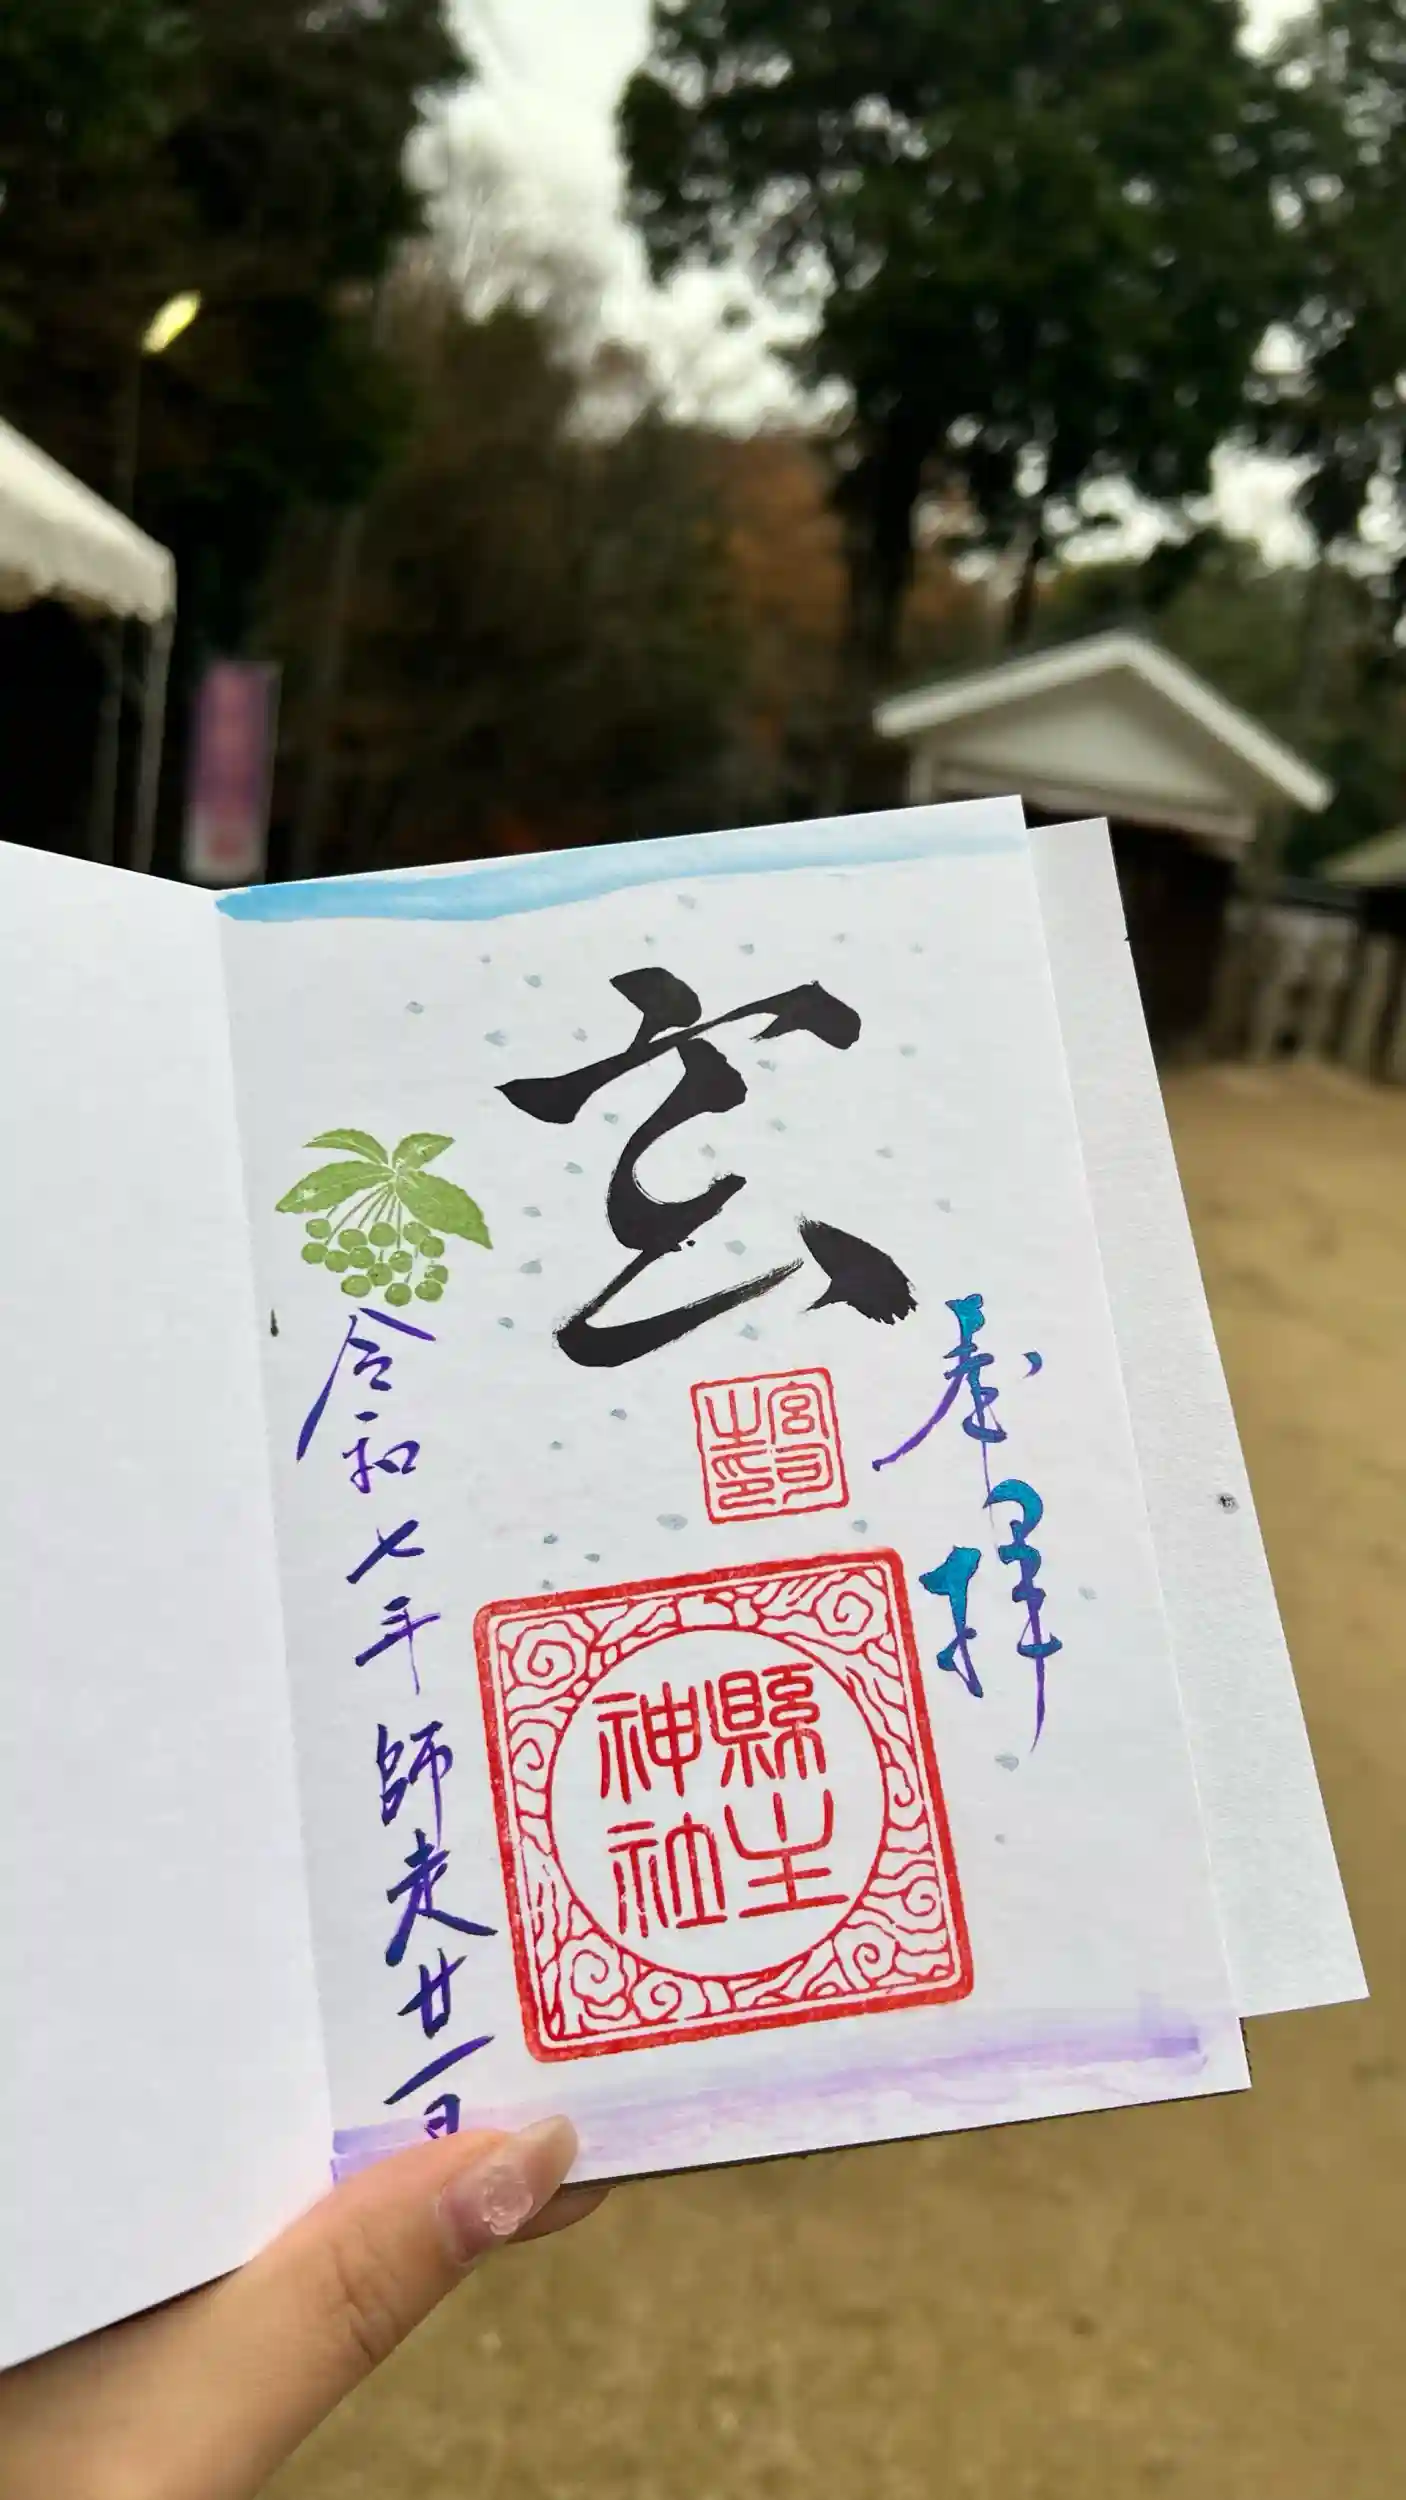 奉拝
玄
宮司
之印
縣主
神社
令和七年師走廿一日